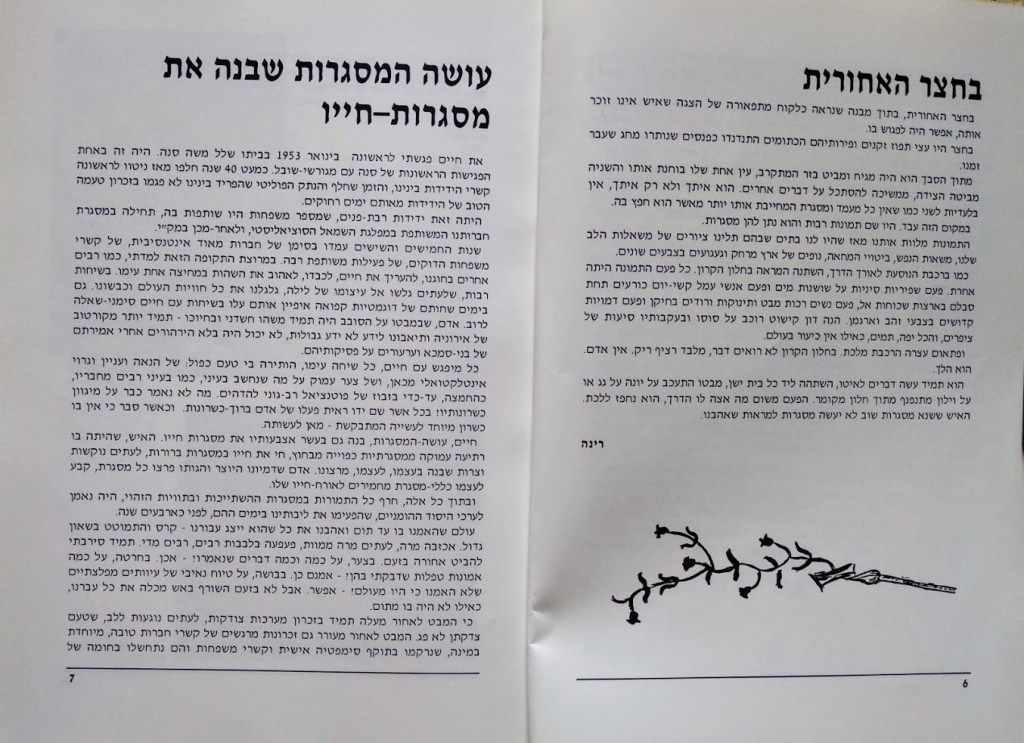 בחצר האחורית
בחצר האחורית, בתוך מבנה שנראה כלקוח מתפאורה של הצגה שאיש אינו זוכר
אותה, אפשר היה לפגוש בו.
בחצר היו עצי תפוז זקנים ופירותיהם הכתומים התנדנדו כפנסים שנותרו מחג שעבר
זמנו.
מתוך הסבך הוא היה מגיח ומביט בזר המתקרב, עין אחת שלו בוחנת אותו והשניה
מביטה הצידה, ממשיכה להסתכל על דברים אחרים. הוא איתך ולא רק איתך, אין
בלעדיות לשני כמו שאין כל מעמד ומסגרת המחייבת אותו יותר מאשר הוא חפץ בה.
במקום הזה עבד. היו שם תמונות רבות והוא נתן להן מסגרות.
התמונות מלוות אותנו מאז שהיו לנו בתים שבהם תלינו ציורים של משאלות הלב
שלנו, משאות הנפש, ביטויי המחאה, נופים של ארץ מרחק וגעגועים בצבעים שונים.
כמו ברכבת הנוסעת לאורך הדרך, השתנה המראה בחלון הקרון. כל פעם התמונה היתה
אחרת. פעם שפיריות סיניות על שושנות מים ופעם אנשי עמל קשי-יום כורעים תחת
סבלם בארצות שכוחות אל, פעם נשים רכות מבט ותינוקות ורודים בחיקן ופעם דמויות
קדושים בצבעי זהב וארגמן. הנה דון קישוט רוכב על סוסו ובעקבותיו סיעות של
ציפרים, והכל יפה, תמים, כאילו אין כיעור בעולם.
ופתאום עצרה הרכבת מלכת. בחלון הקרון לא רואים דבר, מלבד רציף ריק. אין אדם.
הוא הלך.
הוא תמיד עשה דברים לאיטו, השתהה ליד כל בית ישן, מבטו התעכב על יונה על גג או
על וילון מתנפנף מתוך חלון מקומר. הפעם משום מה אצה לו הדרך, הוא נחפז ללכת.
האיש ששנא מסגרות שוב לא יעשה מסגרות למראות שאהבנו.
רינה
6
עושה המסגרות שבנה את
מסגרות–חייו
את חיים פגשתי לראשונה בינואר 1953 בביתו שלל משה סנה. היה זה באחת
הפגישות הראשונות של סנה עם מגורשי-שובל. כמעט 40 שנה חלפו מאז ניטוו לראשונה
קשרי הידידות בינינו, והזמן שחלף והנתק הפוליטי שהפריד בינינו לא פגמו בזכרון טעמה
הטוב של הידידות מאותם ימים רחוקים.
היתה זאת ידידות רבת-פנים, שמספר משפחות היו שותפות בה, תחילה במסגרת
חברותנו המשותפת במפלגת השמאל הסוציאליסטי, ולאחר-מכן במק״י.
שנות החמישים והשישים עמדו בסימן של חברות מאוד אינטנסיבית, של קשרי
משפחות הדוקים, של פעילות משותפת רבה. במרוצת התקופה הזאת למדתי, כמו רבים
אחרים בחוגנו, להעריך את חיים, לכבדו, לאהוב את השהות במחיצה אחת עימו. בשיחות
רבות, שלעתים גלשו אל עיצומו של לילה, גלגלנו את כל חוויות העולם וכבשונו. גם
בימים שחותם של דוגמטיות קפואה איפיין אותם עלו בשיחות עם חיים סימני-שאלה
לרוב. אדם, שבמבטו על הסובב היה תמיד משהו חשדני ובחיוכו - תמיד יותר מקורטוב
של אירוניה ותיאבונו לידע לא ידע גבולות, לא יכול היה בלא הירהורים אחרי אמירתם
של בני-סמכא וערעורים על פסיקותיהם.
כל מיפגש עם חיים, כל שיחה עימו, הותירה בי טעם כפול: של הנאה ועניין וגרוי
אינטלקטואלי מכאן, ושל צער עמוק על מה שנחשב בעיני, כמו בעיני רבים מחבריו,
כהחמצה, עד-כדי בזבוז של פוטנציאל רב-גוני להדהים. מה לא נאמר כבר על מיגוון
כשרונותיו! בכל אשר שם ידו ראית פעלו של אדם ברוך-כשרונות. וכאשר סבר כי אין בו
כשרון מיוחד לעשייה המתבקשת - מאן לעשותה.
חיים, עושה-המסגרות, בנה גם בעשר אצבעותיו את מסגרות חייו. האיש, שהיתה בו
רתיעה עמוקה ממסגרתיות כפוייה מבחוץ, חי את חייו במסגרות ברורות, לעתים נוקשות
וצרות שבנה בעצמו, לעצמו, מרצונו. אדם שדמיונו היוצר והגותו פרצו כל מסגרת, קבע
לעצמו כללי-מסגרת מחמירים לאורח-חייו שלו.
ובתוך כל אלה, חרף כל התמורות במסגרות ההשתייכות ובתוויות הזהוי, היה נאמן
לערכי היסוד ההומניים, שהפעימו את ליבותינו בימים ההם, לפני כארבעים שנה.
עולם שהאמנו בו עד תום ואהבנו את כל שהוא ייצג עבורנו - קרס והתמוטט בשאון
גדול. אכזבה מרה, לעתים מרה ממוות, פעפעה בלבבות רבים, רבים מדי. תמיד סירבתי
להביט אחורה בזעם. בצער, על כמה וכמה דברים שנאמרו! - אכן. בחרטה, על כמה
אמונות טפלות שדבקתי בהן! - אמנם כן. בבושה, על טיוח נאיבי של עיוותים מפלצתיים
שלא האמנו כי היו מעולם! - אפשר. אבל לא בזעם השורף באש מכלה את כל עברנו,
כאילו לא היה בו מתום.
כי המבט לאחור מעלה תמיד בזכרון מערכות צודקות, לעתים נוגעות ללב, שטעם
צדקתן לא פג. המבט לאחור מעורר גם זכרונות מרגשים של קשרי חברות טובה, מיוחדת
במינה, שנרקמו בתוקף סימפטיה אישית וקשרי משפחות והם נתחשלו בחומה של
7